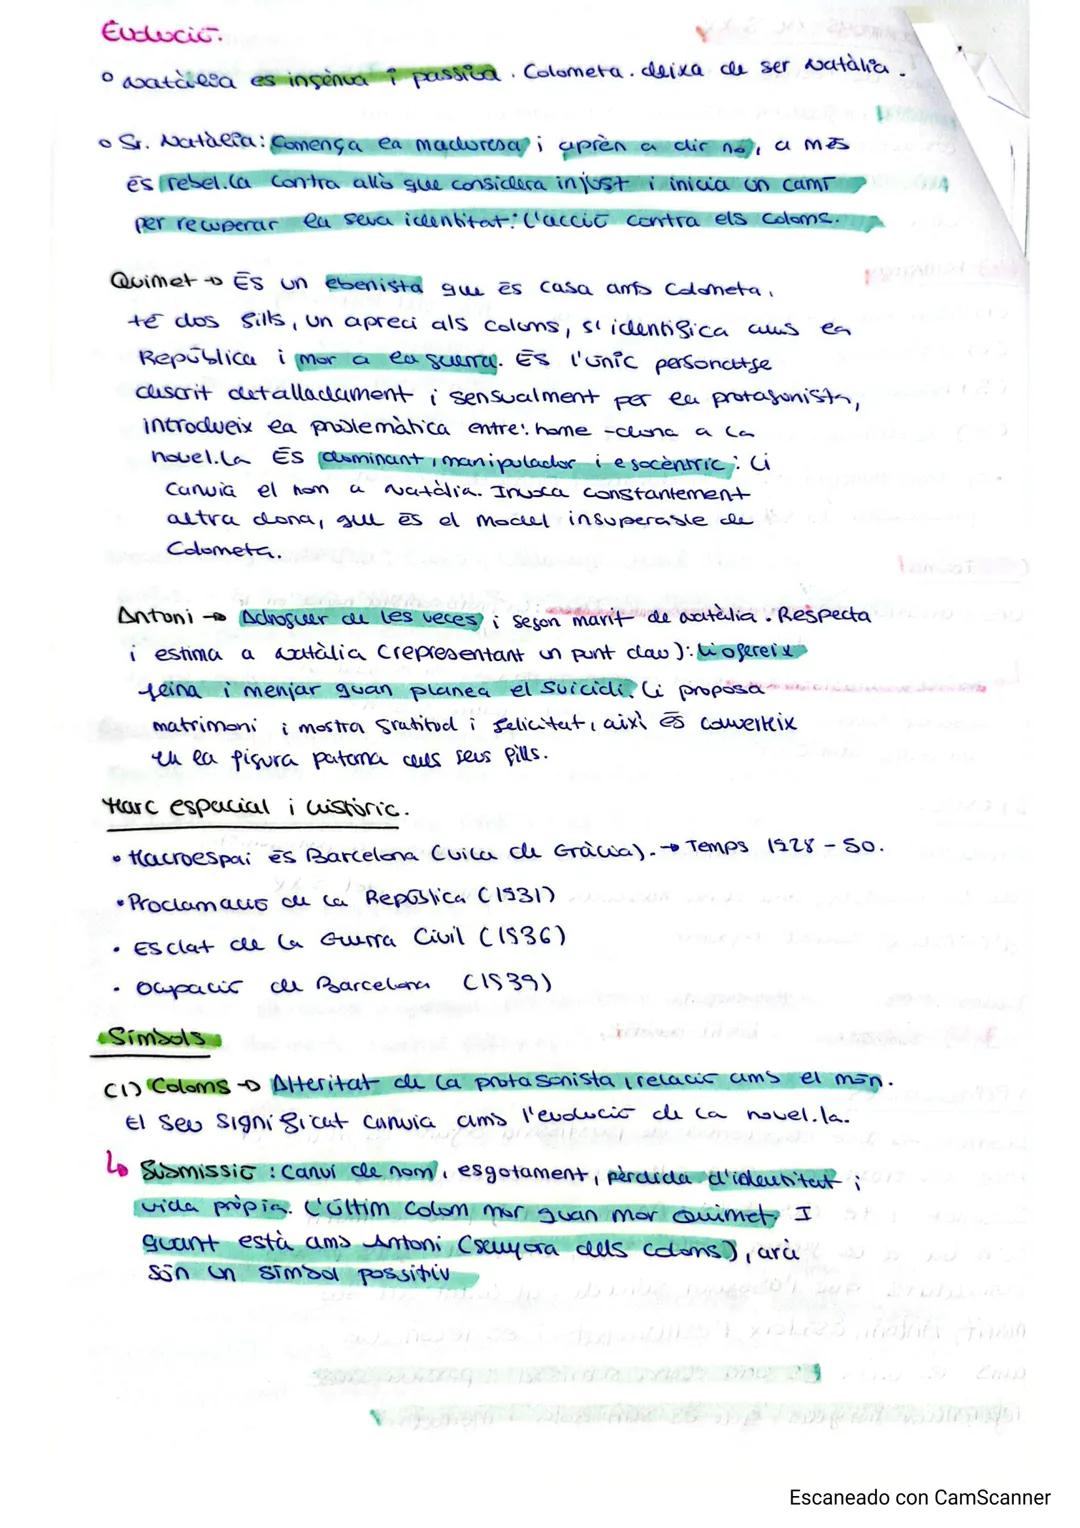 Evolució.
° Natàlia es ingènua i passiva. Colometa. deixa de ser Natàlia.
° Sr. Natàlia: Comença la maduresa i aprèn a dir no, a més
és rebel.la contra allò que considera injust i inicia un camí
per recuperar la seva identitat: l'acció contra els coloms.
Quimet → És un ebenista que es casa amb Colometa,
té dos fills, un apreci als coloms, s'identifica amb la
República i mor a la guerra. És l'únic personatge
descrit detalladament i sensualment per la protagonista,
introdueix la problemàtica entre: home-dona a la
novel.la És dominant, manipulador i egocèntric: li
canvia el nom a Natàlia. Invoca constantement
altra dona, que és el model insuperable de
Colometa.
Antoni → Adroguer de les veces i segon marit de Natàlia. Respecta
i estima a Natàlia (representant un punt clau): li ofereix
feina i menjar quan planea el suïcidi. li proposa
matrimoni i mostra gratitud i felicitat, així és converteix
en la figura paterna dels seus fills.
Marc espacial i històric.
• Macroespai és Barcelona (vila de Gràcia). → Temps 1928 - 50.
• Proclamació de la República (1931)
• Esclat de la Guerra Civil (1936)
• Ocupació de Barcelona (1939)
Símbols
(1) Coloms → Alteritat de la protagonista, relació amb el món.
El seu significat canvia amb l'evolució de la novel.la.
↳ Submissió: Canvi de nom, esgotament, pèrdida d'identitat i
vida pròpia. L'últim colom mor quan mor Quimet. I
quant està amb Antoni (senyora dels coloms), ara
són un símbol possitiu
Escaneado con CamScanner